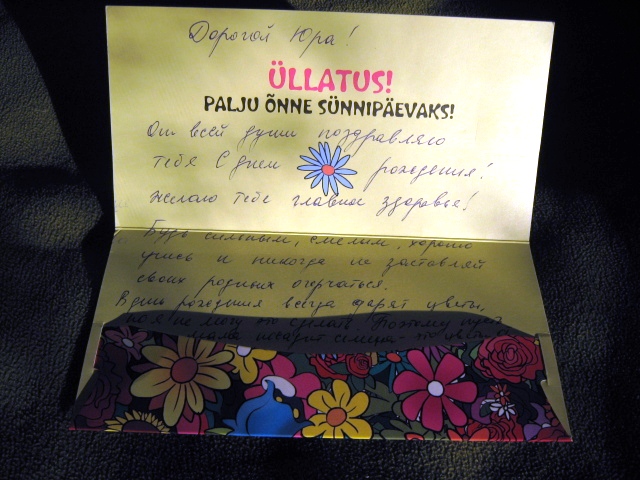 Дорогой Юра!
ÜLLATUS!
PALJU ÕNNE SÜNNIPÄEVAKS!
От всей души поздравляю
тебя С днем рождения!
желаю тебе главное здоровье!
Будь сильным, смелым, хорошо
учись и никогда не заставляй
своих родных огорчаться.
В день рождения всегда дарят цветы,
не могу это сделать Поэтому